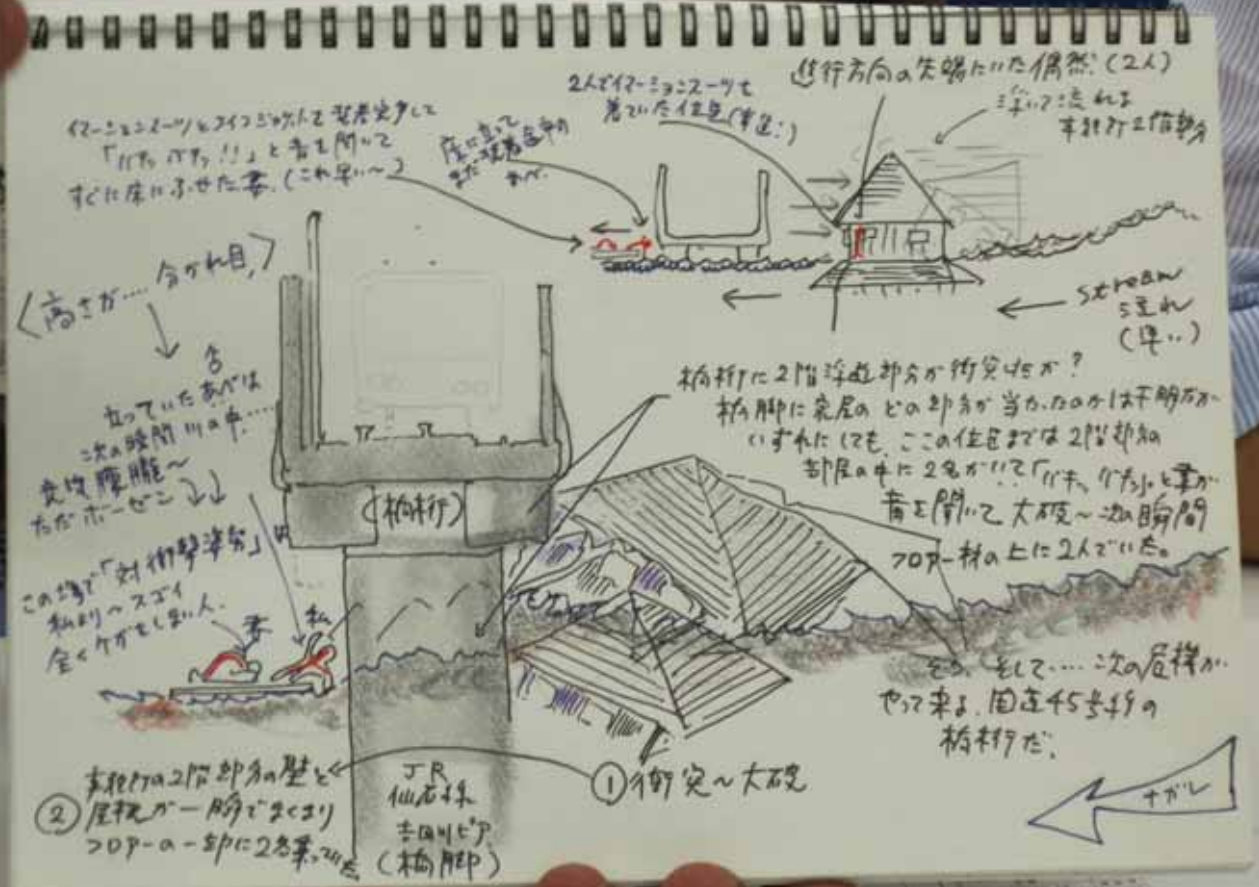 イマーションスーツとライフジャケットを装着完了して
「バキッ バキッ!!」と音を聞いて
すぐに床にふせた妻.(これ早い〜)
床に立って
まだ装着途中の
あべ.
2人でイマーションスーツを
着ていた位置
進行方向の先端にいた偶然.(2人)
浮いて流れる
事務所2階部分
〈高さが.... 分かれ目.〉
Stream
流れ
(早い)
立っていたあべは
次の瞬間 川の中....
意識朦朧〜
ただボーゼン
この場で「対衝撃姿勢」は
私より〜スゴイ
全くケガをしない人.
妻
私
(橋桁)
橋桁に2階浮遊部分が衝突したか?
橋脚に家屋の どの部分が 当たったのかは不明だが
いずれにしても、ここの位置までは 2階部分の
部屋の中に2名がいて「バキッ バキッ」と妻が
音を聞いて 大破〜次の瞬間
フロアー材の上に2人でいた。
そして.... 次の屋根が
やって来る. 国道45号線の
橋桁だ.
ナガレ
① 衝突〜大破
② 事務所の2階部分の壁と
屋根が一瞬でまくまり
フロアーの一部に2名乗っていた
JR
仙石線
吉田川ピア
(橋脚)